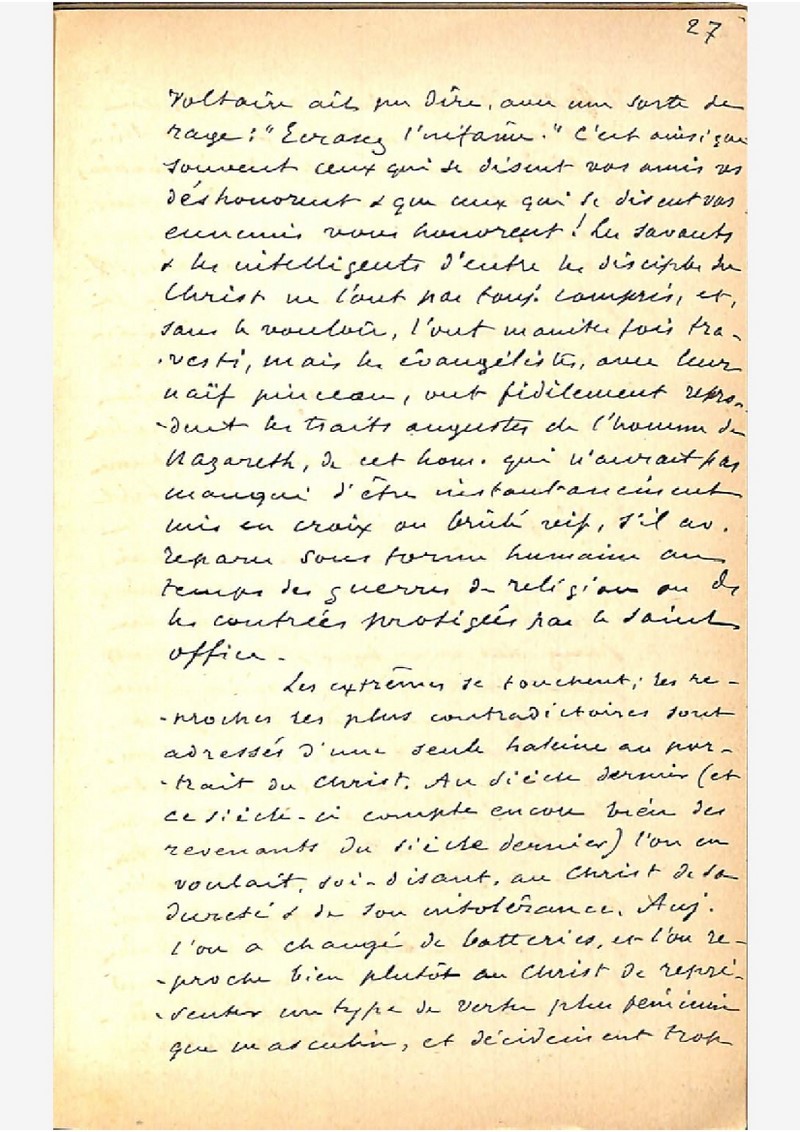 27
Voltaire ait pu dire, avec une sorte de
rage: "Ecrasez l'infâme." C'est ainsi que
souvent ceux qui se disent vos amis vs
déshonorent & que ceux qui se disent vos
ennemis vous honorent! Les savants
& les intelligents d'entre les disciples du
Christ ne l'ont pas touj. compris, et,
sans le vouloir, l'ont maintes fois tra-
-vesti, mais les évangélistes, avec leur
naïf pinceau, ont fidèlement repro-
-duit les traits augustes de l'homme de
Nazareth, de cet hom. qui n'aurait pas
manqué d'être instantanément
mis en croix ou brûlé vif, s'il av.
reparu sous forme humaine au
temps des guerres de religion ou ds
les contrées protégées par le saint
office.
Les extrêmes se touchent; les re-
-proches les plus contradictoires sont
adressés d'une seule haleine au por-
-trait du Christ. Au siècle dernier (et
ce siècle-ci compte encore bien des
revenants du siècle dernier) l'on en
voulait, soi-disant, au Christ de sa
dureté & de son intolérance. Auj.
l'on a changé de batteries, et l'on re-
-proche bien plutôt au Christ de repré-
-senter un type de vertu plus féminin
que masculin, et décidément trop